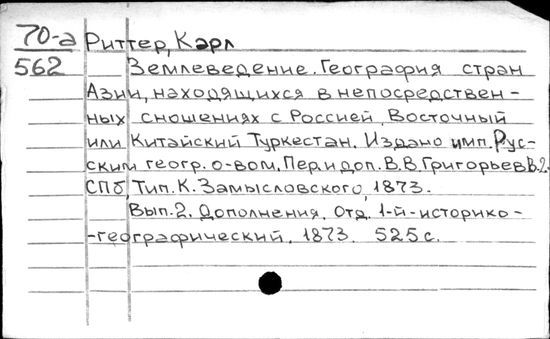 70-а Риттер, Карл
562 Землеведение. География стран
Азии, находящихся в непосредствен-
ных сношениях с Россией, Восточный
или Китайский Туркестан. Издано имп. Рус-
ским геогр. о-вом. Пер. и доп. В.В. Григорьев В. 2.
СПб, Тип. К. Замысловского, 1873.
Вып. 2. Дополнения. Отд. 1-й - историко-
-географический. 1873. 525 с.